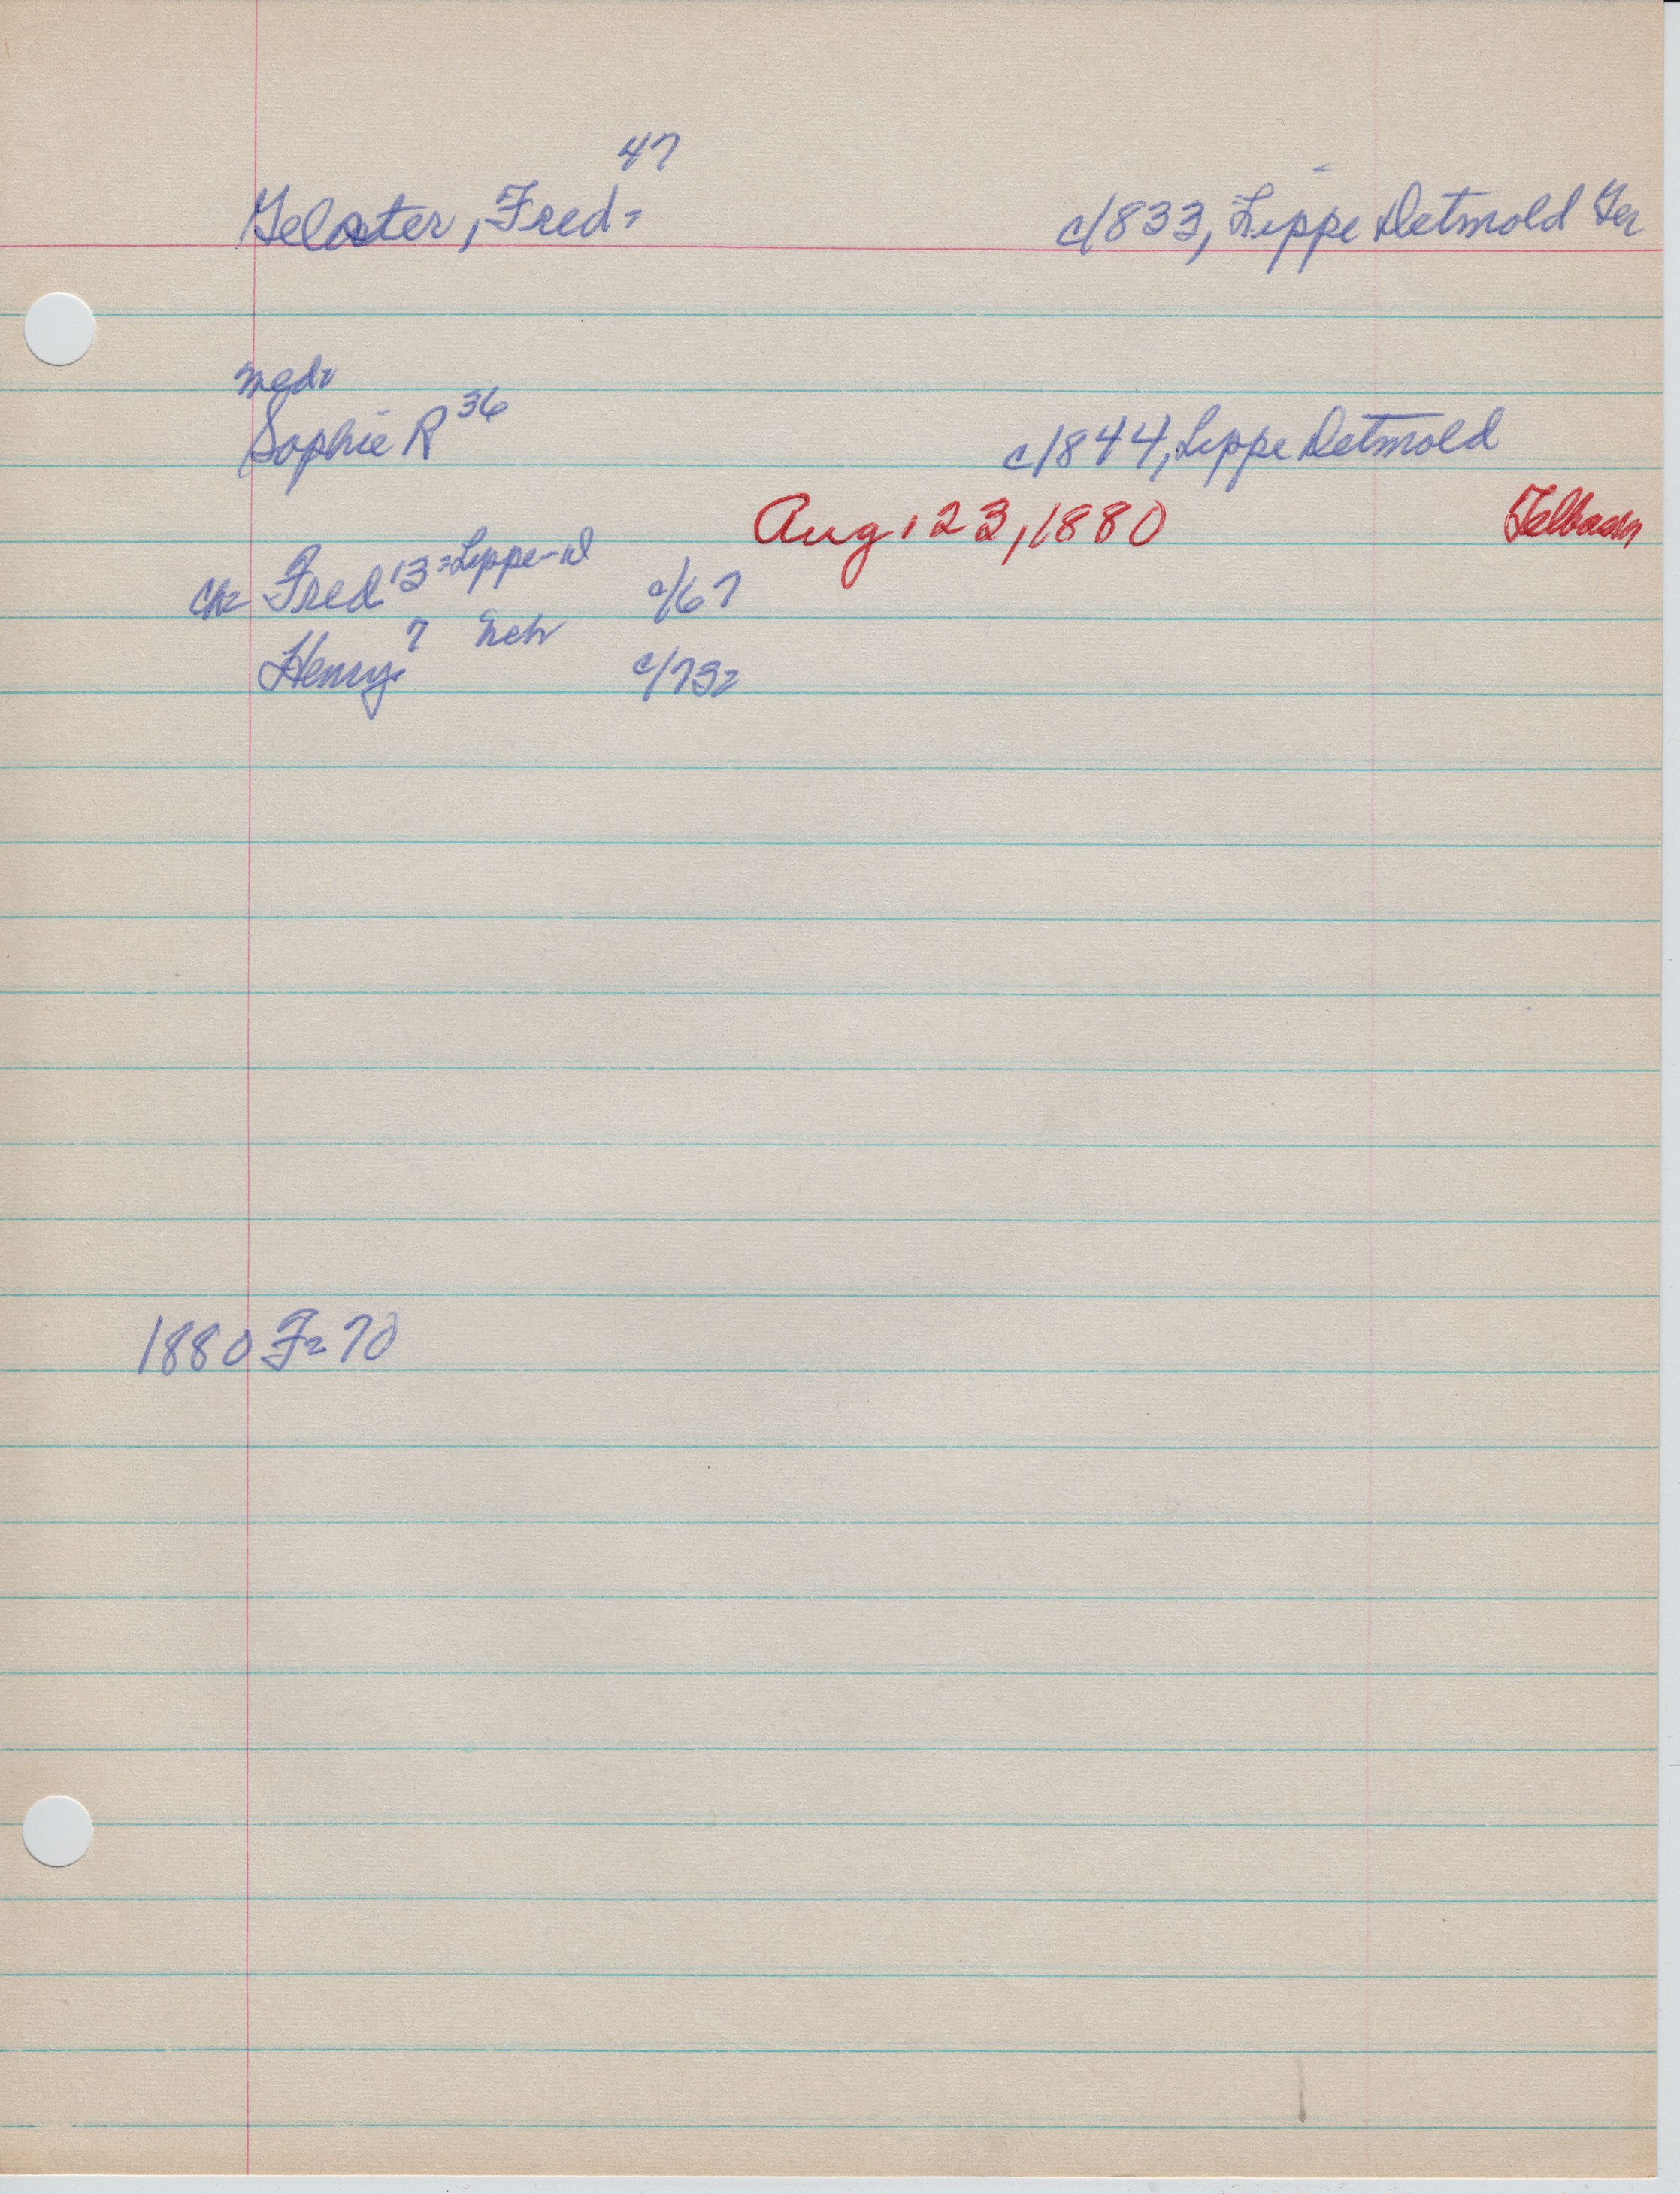 47
Gelster, Fred= c1833, Lippe Detmold Ger
med=
Sophie R 36 c1844, Lippe Detmold
Aug, 23, 1880
ch= Fred 13=Lippe-d c/67
Henry 7 Neb c/73=
1880 F=70